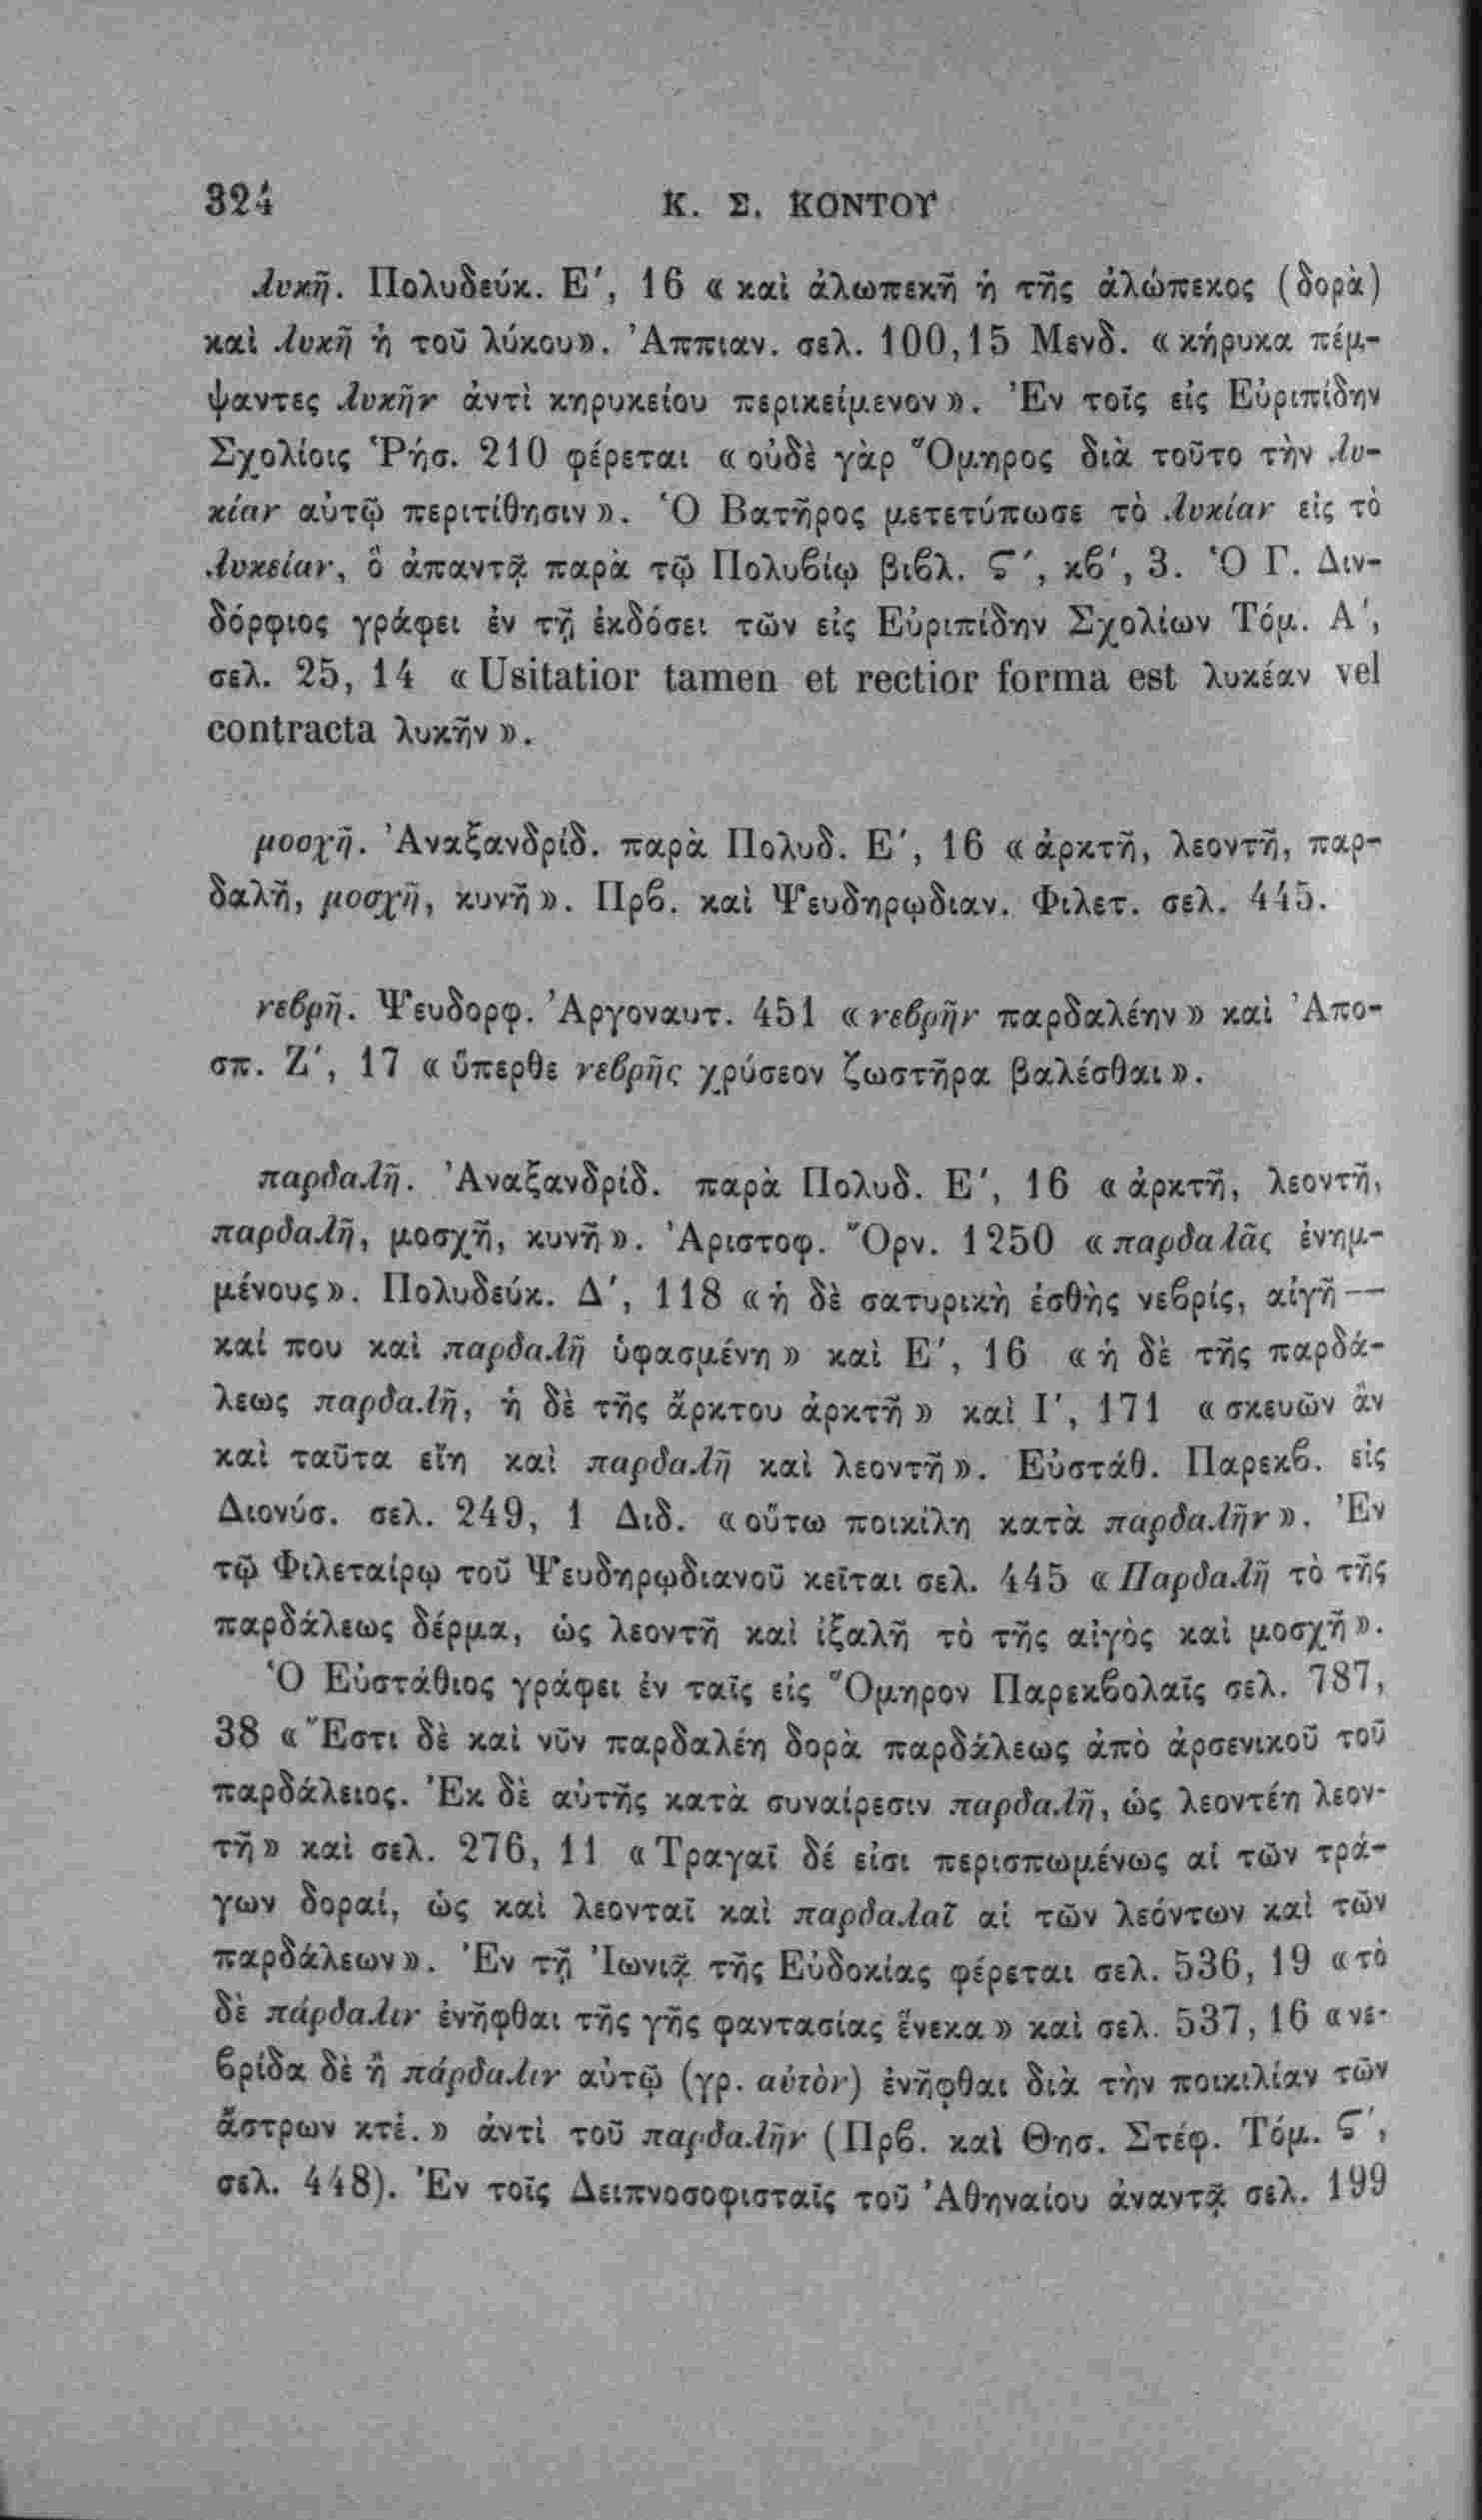 324 Κ. Σ. ΚΟΝΤΟΥ
λυκῆ. Πολυδεύκ. Ε΄, 16 « καὶ ἀλωπεκῆ ἡ τῆς ἀλώπεκος (δορὰ)
καὶ λυκῆ ἡ τοῦ λύκου». Ἀππιαν. σελ. 100,15 Μενδ. « κήρυκα πέμ-
ψαντες λυκῆν ἀντὶ κηρυκείου περικείμενον ». Ἐν τοῖς εἰς Εὐριπίδην
Σχολίοις Ῥήσ. 210 φέρεται « οὐδὲ γὰρ Ὅμηρος διὰ τοῦτο τὴν λυ-
κίαν αὐτῷ περιτίθησιν ». Ὁ Βατῆρος μετετύπωσε τὸ λυκίαν εἰς τὸ
λυκείαν, ὃ ἀπαντᾷ παρὰ τῷ Πολυβίῳ βιβλ. Ϛ΄, κβ΄, 3. Ὁ Γ. Διν-
δόρφιος γράφει ἐν τῇ ἐκδόσει τῶν εἰς Εὐριπίδην Σχολίων Τόμ. Α΄,
σελ. 25, 14 « Usitatior tamen et rectior forma est λυκέαν vel
contracta λυκῆν ».
μοσχῆ. Ἀναξανδρίδ. παρὰ Πολυδ. Ε΄, 16 « ἀρκτῆ, λεοντῆ, παρ-
δαλῆ, μοσχῆ, κυνῆ ». Πρβ. καὶ Ψευδηρῳδιαν. Φιλετ. σελ. 445.
νεβρῆ. Ψευδορφ. Ἀργοναυτ. 451 « νεβρῆν παρδαλέην » καὶ Ἀπο-
σπ. Ζ΄, 17 « ὕπερθε νεβρῆς χρύσεον ζωστῆρα βαλέσθαι ».
παρδαλῆ. Ἀναξανδρίδ. παρὰ Πολυδ. Ε΄, 16 « ἀρκτῆ, λεοντῆ,
παρδαλῆ, μοσχῆ, κυνῆ ». Ἀριστοφ. Ὄρν. 1250 « παρδαλᾶς ἐνημ-
μένους ». Πολυδεύκ. Δ΄, 118 « ἡ δὲ σατυρικὴ ἐσθὴς νεβρίς, αἰγῆ —
καί που καὶ παρδαλῆ ὑφασμένη » καὶ Ε΄, 16 « ἡ δὲ τῆς παρδά-
λεως παρδαλῆ, ἡ δὲ τῆς ἄρκτου ἀρκτῆ » καὶ Ι΄, 171 « σκευῶν ἂν
καὶ ταῦτα εἴη καὶ παρδαλῆ καὶ λεοντῆ ». Εὐστάθ. Παρεκβ. εἰς
Διονύσ. σελ. 249, 1 Διδ. « οὕτω ποικίλη κατὰ παρδαλῆν ». Ἐν
τῷ Φιλεταίρῳ τοῦ Ψευδηρῳδιανοῦ κεῖται σελ. 445 « Παρδαλῆ τὸ τῆς
παρδάλεως δέρμα, ὡς λεοντῆ καὶ ἰξαλῆ τὸ τῆς αἰγὸς καὶ μοσχῆ ».
Ὁ Εὐστάθιος γράφει ἐν ταῖς εἰς Ὅμηρον Παρεκβολαῖς σελ. 787,
38 « Ἔστι δὲ καὶ νῦν παρδαλέη δορὰ παρδάλεως ἀπὸ ἀρσενικοῦ τοῦ
παρδάλειος. Ἐκ δὲ αὐτῆς κατὰ συναίρεσιν παρδαλῆ, ὡς λεοντέη λεον-
τῆ » καὶ σελ. 276, 11 « Τραγαῖ δέ εἰσι περισπωμένως αἱ τῶν τρά-
γων δοραί, ὡς καὶ λεονταῖ καὶ παρδαλαῖ αἱ τῶν λεόντων καὶ τῶν
παρδάλεων ». Ἐν τῇ Ἰωνιᾷ τῆς Εὐδοκίας φέρεται σελ. 536, 19 « τὸ
δὲ πάρδαλιν ἐνῆφθαι τῆς γῆς φαντασίας ἕνεκα » καὶ σελ. 537, 16 « νε-
βρίδα δὲ ἢ πάρδαλιν αὐτῷ (γρ. αὐτὸν) ἐνῆφθαι διὰ τὴν ποικιλίαν τῶν
ἄστρων κτἑ. » ἀντὶ τοῦ παρδαλῆν (Πρβ. καὶ Θησ. Στέφ. Τόμ. Ϛ΄,
σελ. 448). Ἐν τοῖς Δειπνοσοφισταῖς τοῦ Ἀθηναίου ἀναντᾷ σελ. 199